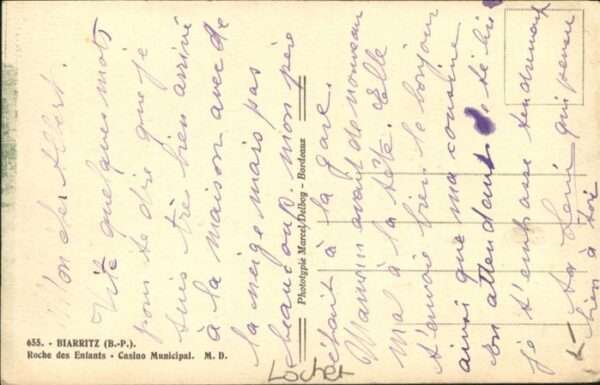 Mon cher Albert.
Vite quelques mots
pour te dire que je
suis très bien arrivé
à la maison avec de
la neige mais pas
beaucoup. mon père
était à la gare.
Maman avant de nouveau
mal à la tête. Elle
t'envoie bien le bonjour
ainsi que ma cousine
en attendant de te lire
je t'embrasse tendrement
ta qui pense
bien à toi
Phototypie Marcel Delboy - Bordeaux
655. - BIARRITZ (B.-P.).
Roche des Enfants - Casino Municipal. M. D.
Locher